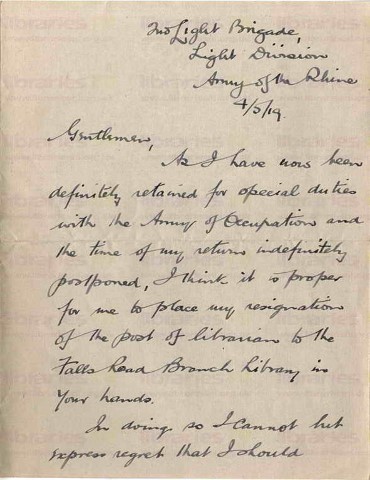 2nd Light Brigade,
Light Division
Army of the Rhine
4/5/19.
Gentlemen,
As I have now been
definitely retained for special duties
with the Army of Occupation and
the time of my return indefinitely
postponed, I think it is proper
for me to place my resignation
of the post of librarian to the
Falls Road Branch Library in
your hands.
In doing so I cannot but
express regret that I should